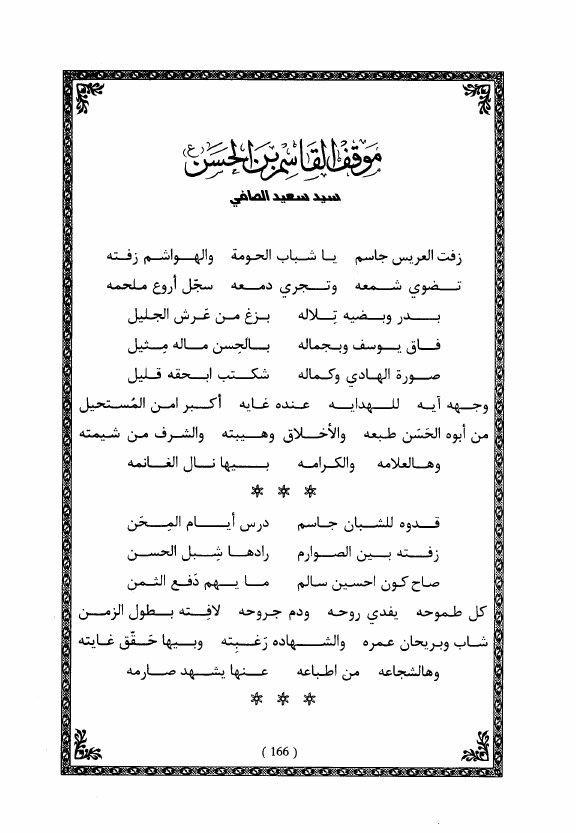 موقف القاسم بن الحسن (ع)
سيد سعيد الصافي
زفت العريس جاسم يـا شـباب الحومة والهـواشـم زفـته
تـضوي شـمعه وتـجري دمـعه سجّل أروع ملحمه
بـدر وبـضيه تِـلاله بـزغ مـن عَـرش الجـليل
فـاق يـوسف وبـجماله بـالحِسن مـاله مِـثيل
صـورة الهـادي وكـماله شكـتب ابـحقه قـليل
وجـهه آيـه للـهدايـه عـنده غـايه أكـبر امـن المُـستحيل
من أبوه الحَسَن طـبعه والأخـلاق وهـيبته والشـرف مـن شـيمته
وهـالعلامه والكـرامـه بـيها نـال الغـانمه
* * *
قـدوه للشـبان جـاسم درس أيـام المِـحَن
زفـته بـين الصـوارم رادهـا شِـبل الحسـن
صـاح كـون احسـين سـالم مـا يـهم دَفـع الثـمن
كل طـموحه يفدي روحـه ودم جـروحه لافـته بـطول الزمـن
شـاب وبـريحان عمـره والشـهاده رَغـبِته وبـيها حَـقّق غـايته
وهالشجاعه من اطـباعه عـنها يشـهد صـارمه
* * *
( 166 )